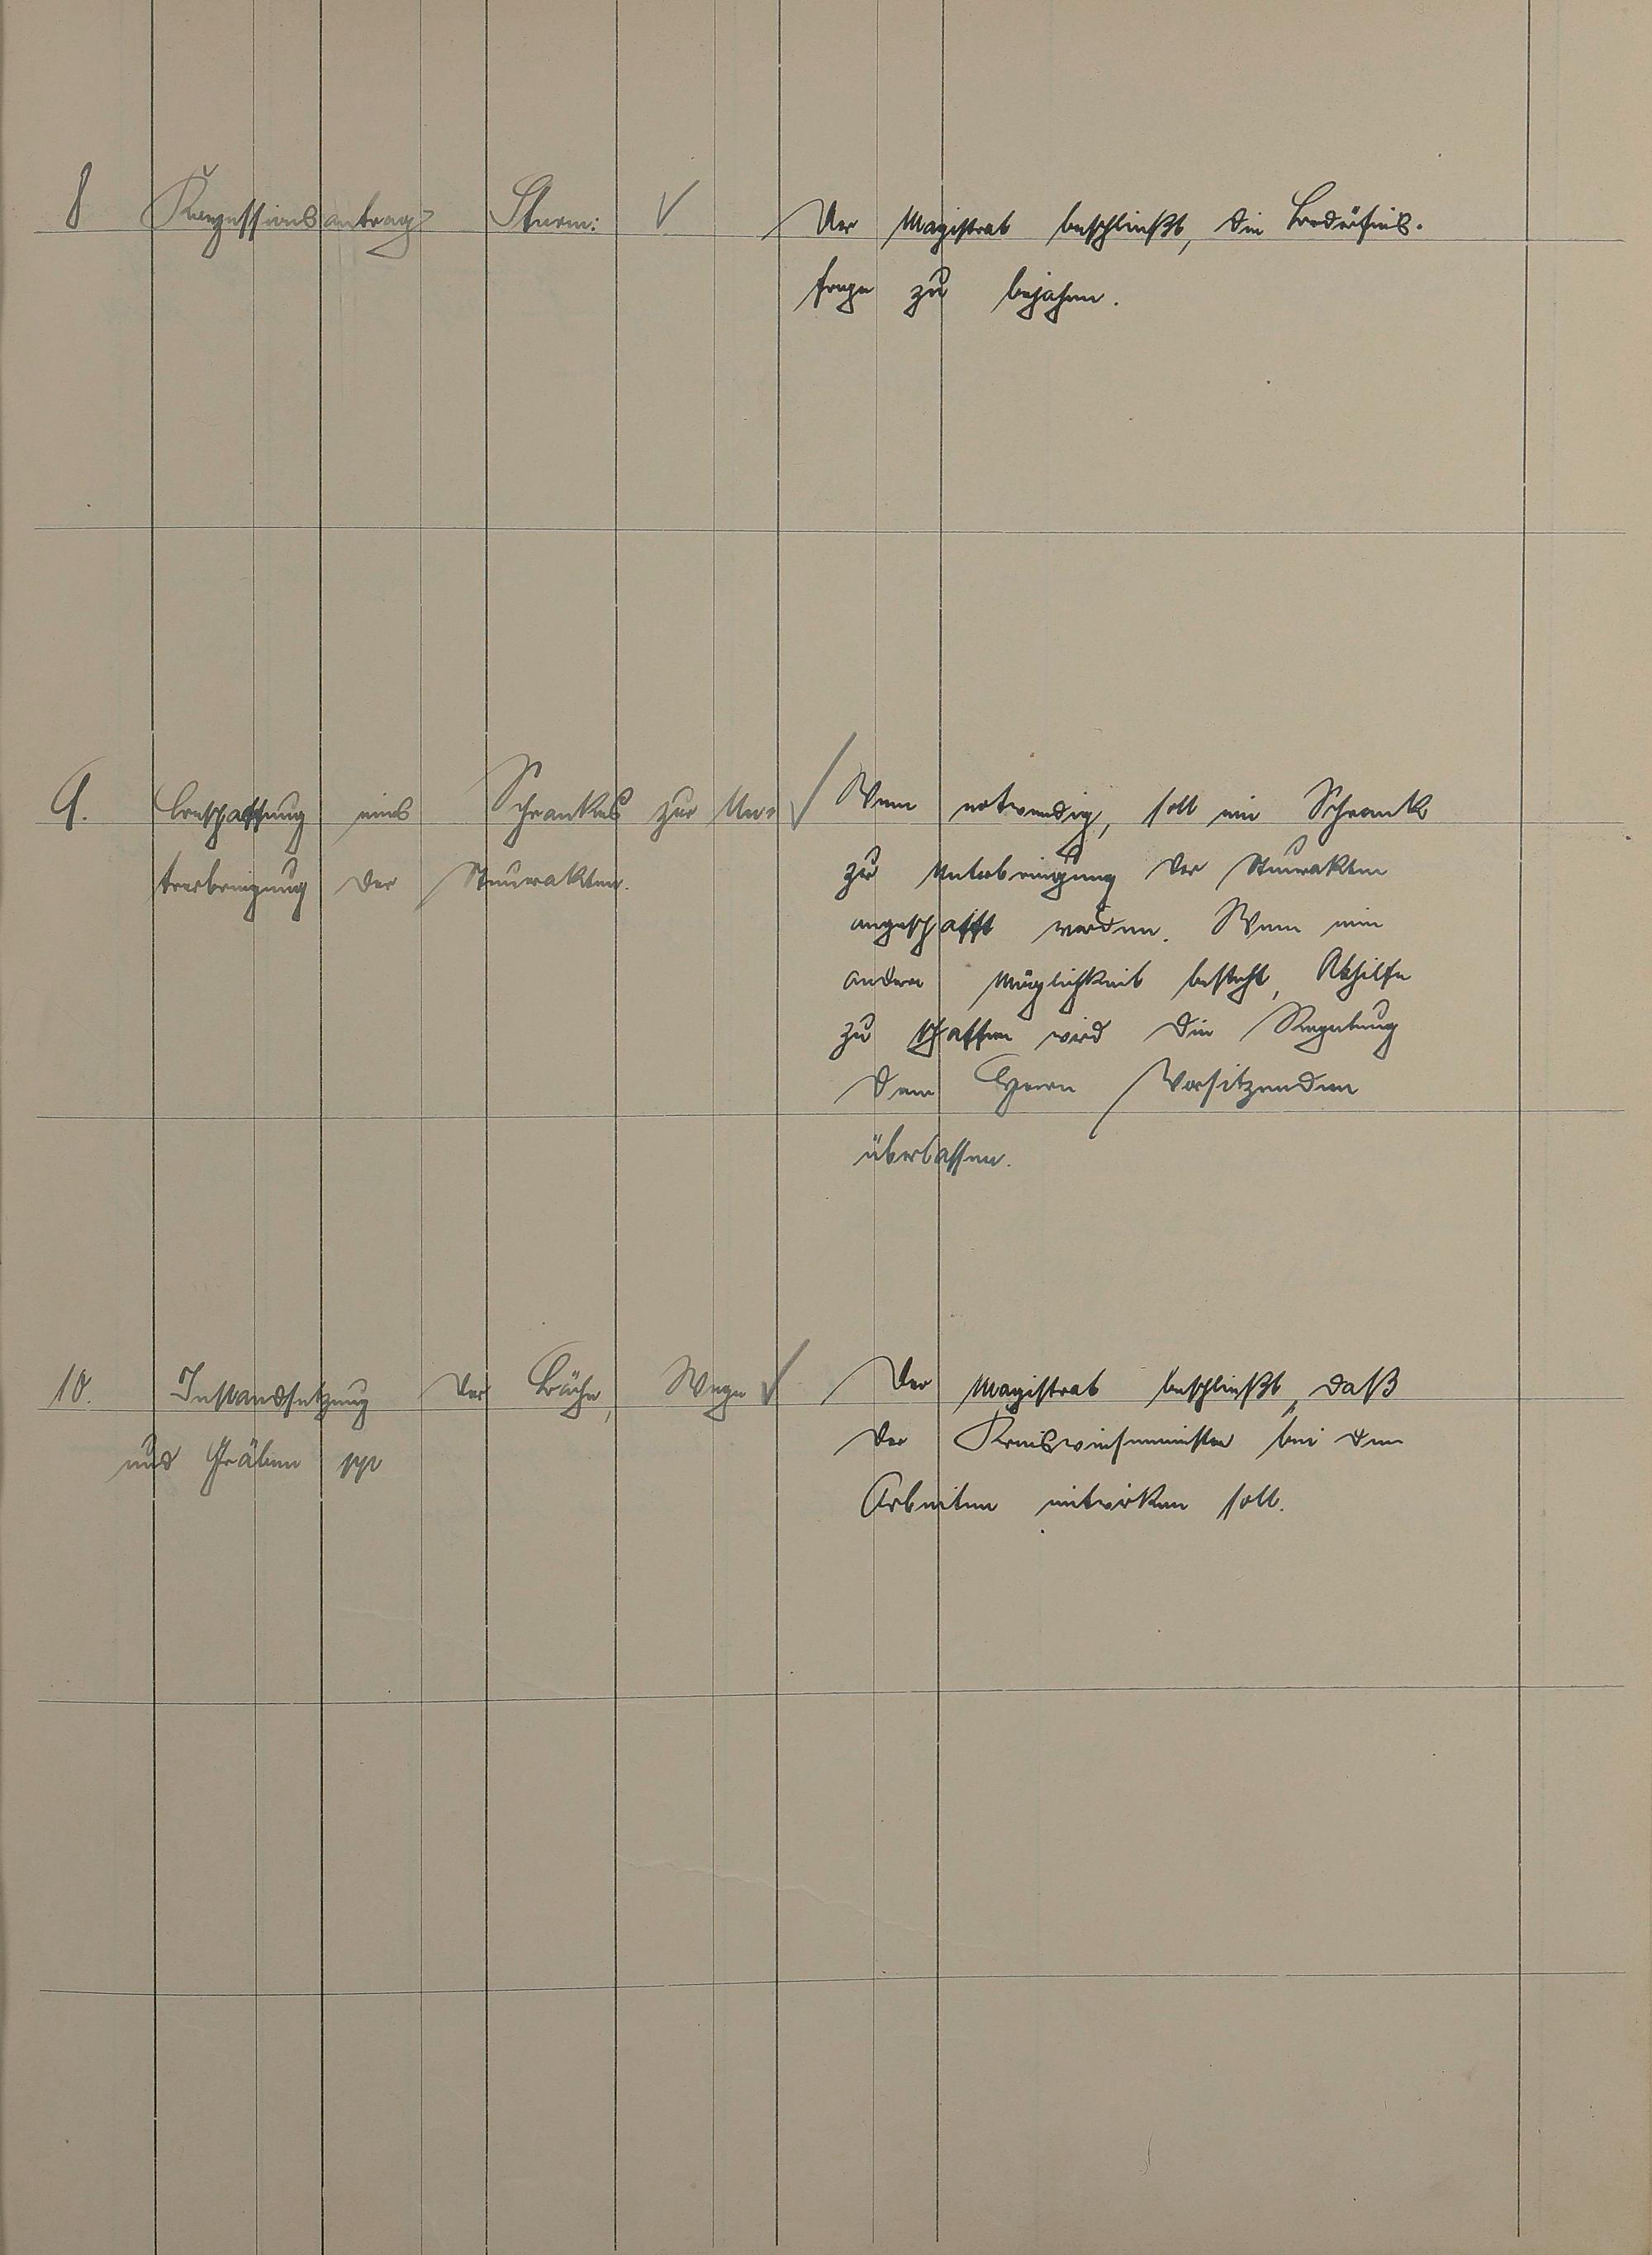 8 Konzessionsantrag Sturm: ✓
Der Magistrat beschließt, die Bedürfnis-
frage zu bejahen.
9. Beschaffung eines Schrankes zur Un-
terbringung der Steuerakten. ✓
Wenn notwendig, soll ein Schrank
zur Unterbringung der Steuerakten
angeschafft werden. Wenn eine
andere Möglichkeit besteht, Abhilfe
zu schaffen wird die Regelung
dem Herrn Vorsitzenden
überlassen.
10. Instandsetzung der Bäche, Wege ✓
und Gräben pp
Der Magistrat beschließt, daß
der Kreiswiesenmeister bei den
Arbeiten mitwirken soll.